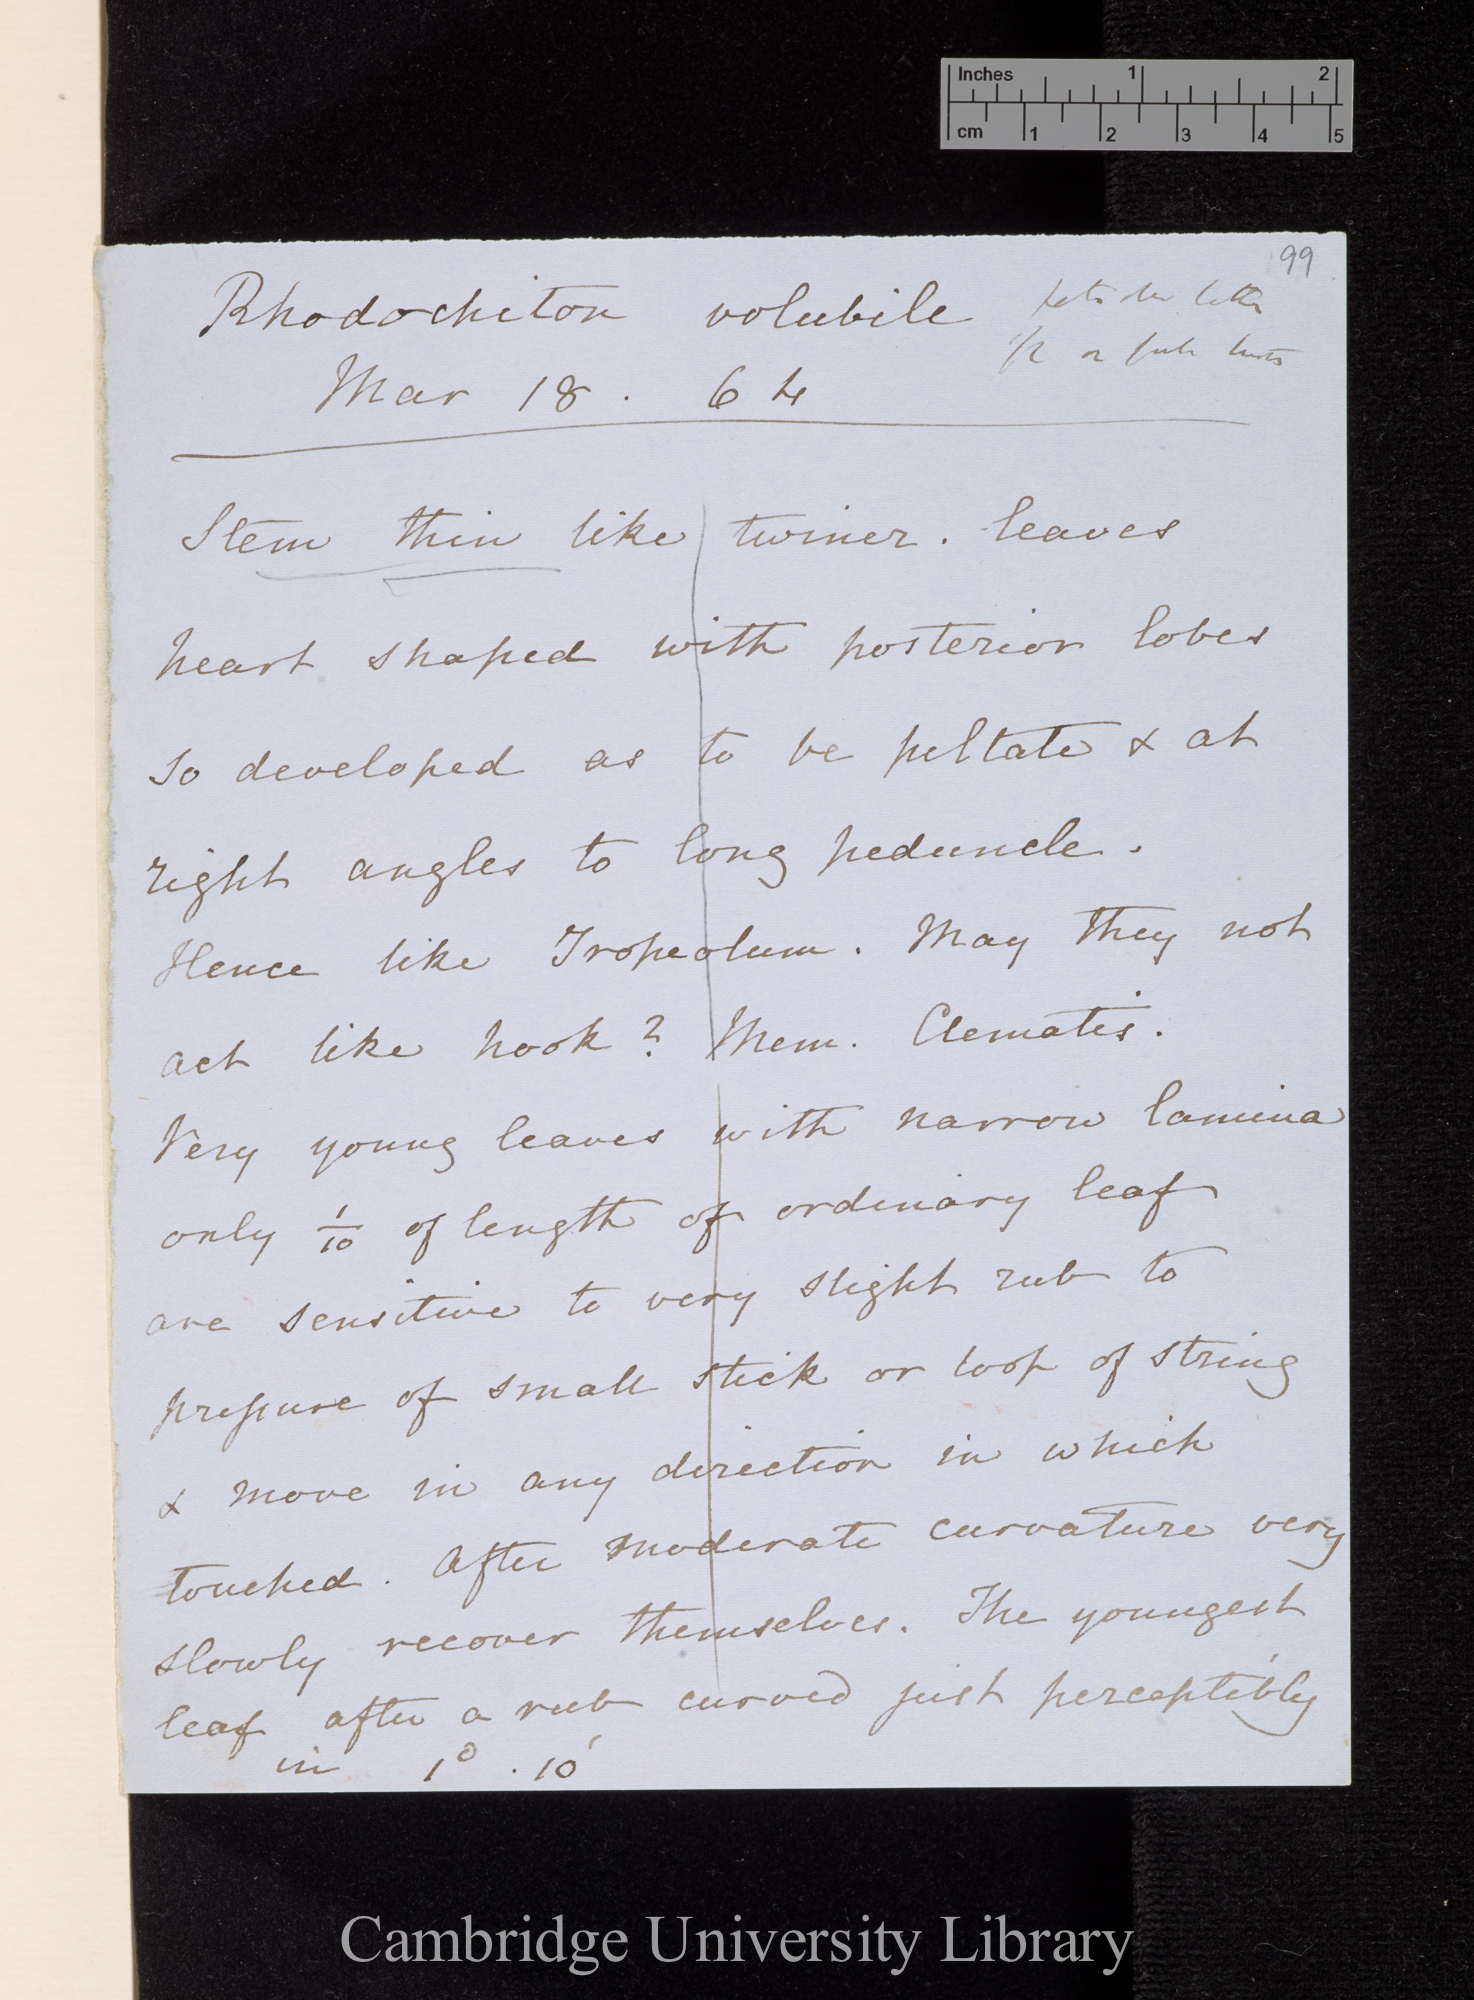 Inches 1 2
cm 1 2 3 4 5
99
Rhodochiton volubile
Mar 18. 64
Stem thin like twiner. leaves
heart shaped with posterior lobes
so developed as to be peltate & at
right angles to long peduncle.
Hence like Tropeolum. May they not
act like hook? Mem. Clematis.
Very young leaves with narrow lamina
only 1/10 of length of ordinary leaf
are sensitive to very slight rub to
pressure of small stick or loop of string
& move in any direction in which
touched. After moderate curvature very
slowly recover themselves. The youngest
leaf after a rub curved just perceptibly
in 1° . 10'
Cambridge University Library